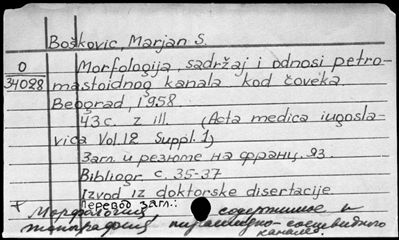 Boškovic, Marjan S.
O
34028
Morfologija, sadržaj i odnosi petro-
mastoidnog kanala kod čoveka.
Beograd, 1958
43 c. z ill. (Acta medica iugosla-
vica Vol. 12 Suppl. 1)
Заг. и резюме на франц. яз.
Bibliogr. c. 35-37
Izvod iz doktorske disertacije
Перевод заг.:
Морфология, содержимое и
топография пирамидно-сосцевидного
канала